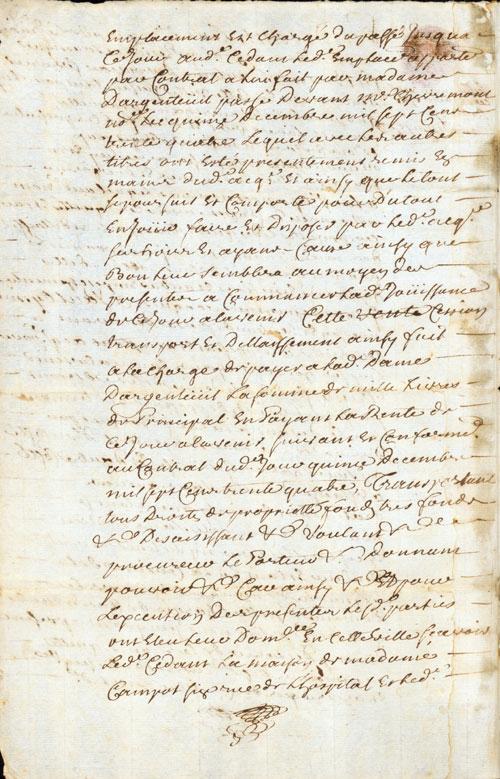 Emplacement Est Chargé du passé Jusqua
Ce Jour aud.t Cedant Led.t Emplace.t apparte
par Contrat a luy fait par madame
Dargenteuil passé Devant m.e
no.re Le quinze Decembre mil sept Cens
trente quatre Lequel avec les autres
titres ont Eté presentement remis Es
mains dud. acq.r Et ainsy que le tout
se poursuit Et Comporte pour Du tout
En Jouir faire Et Disposer par led. acq.r
ses hoirs Et ayans Cause ainsy que
Bon Leur Semblera au moyen des
presentes a Commencer lad. Joüissance
de Ce Jour a lavenir Cette vente Cession
transport Et Dellaissement ainsy fait
a la Charge de payer a lad. Dame
Dargenteuil La somme de mille Livres
de Principal En Payant La Rente de
Ce Jour a lavenir suivant Et Conformé
au Contrat dud. Jour quinze Decembre
mil sept Cens trente quatre, Transportant
tous Droits de proprieté fonds tres fonds
&.a Desaisissant &.a Voulant &.a
procureur Le Porteur &.a donnant
pouvoir &.a Car ainsy &.a Et pour
Lexecution Des presentes Les d. parties
ont Eleu Leur Dom.lle En Cette ville Scavoir
Led. Cedant La maison de madame
Campot size rue de Lhopital Et led.